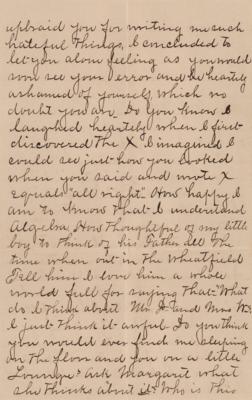 upbraid you for writing me such
hateful things, I concluded to
let you alone feeling as you would
soon see your error and be heartily
ashamed of yourself, which no
doubt you are. Do you know I
laughed heartely when I first
discovered the X. I imagined I
could see just how you looked
when you said and wrote X
equals "all right". How happy I
am to know that I understand
Algebra. How thoughtful of my little
boy to think of his Father all the
time when out in the wheatfield
Tell him I love him a whole
world full for saying that. "What
do I think about Mr. and Mrs W."
I just think it awful. Do you think
you would ever find me sleeping
on the floor and you on a little
Lounge? Ask Margaret what
she thinks about it. Who is this